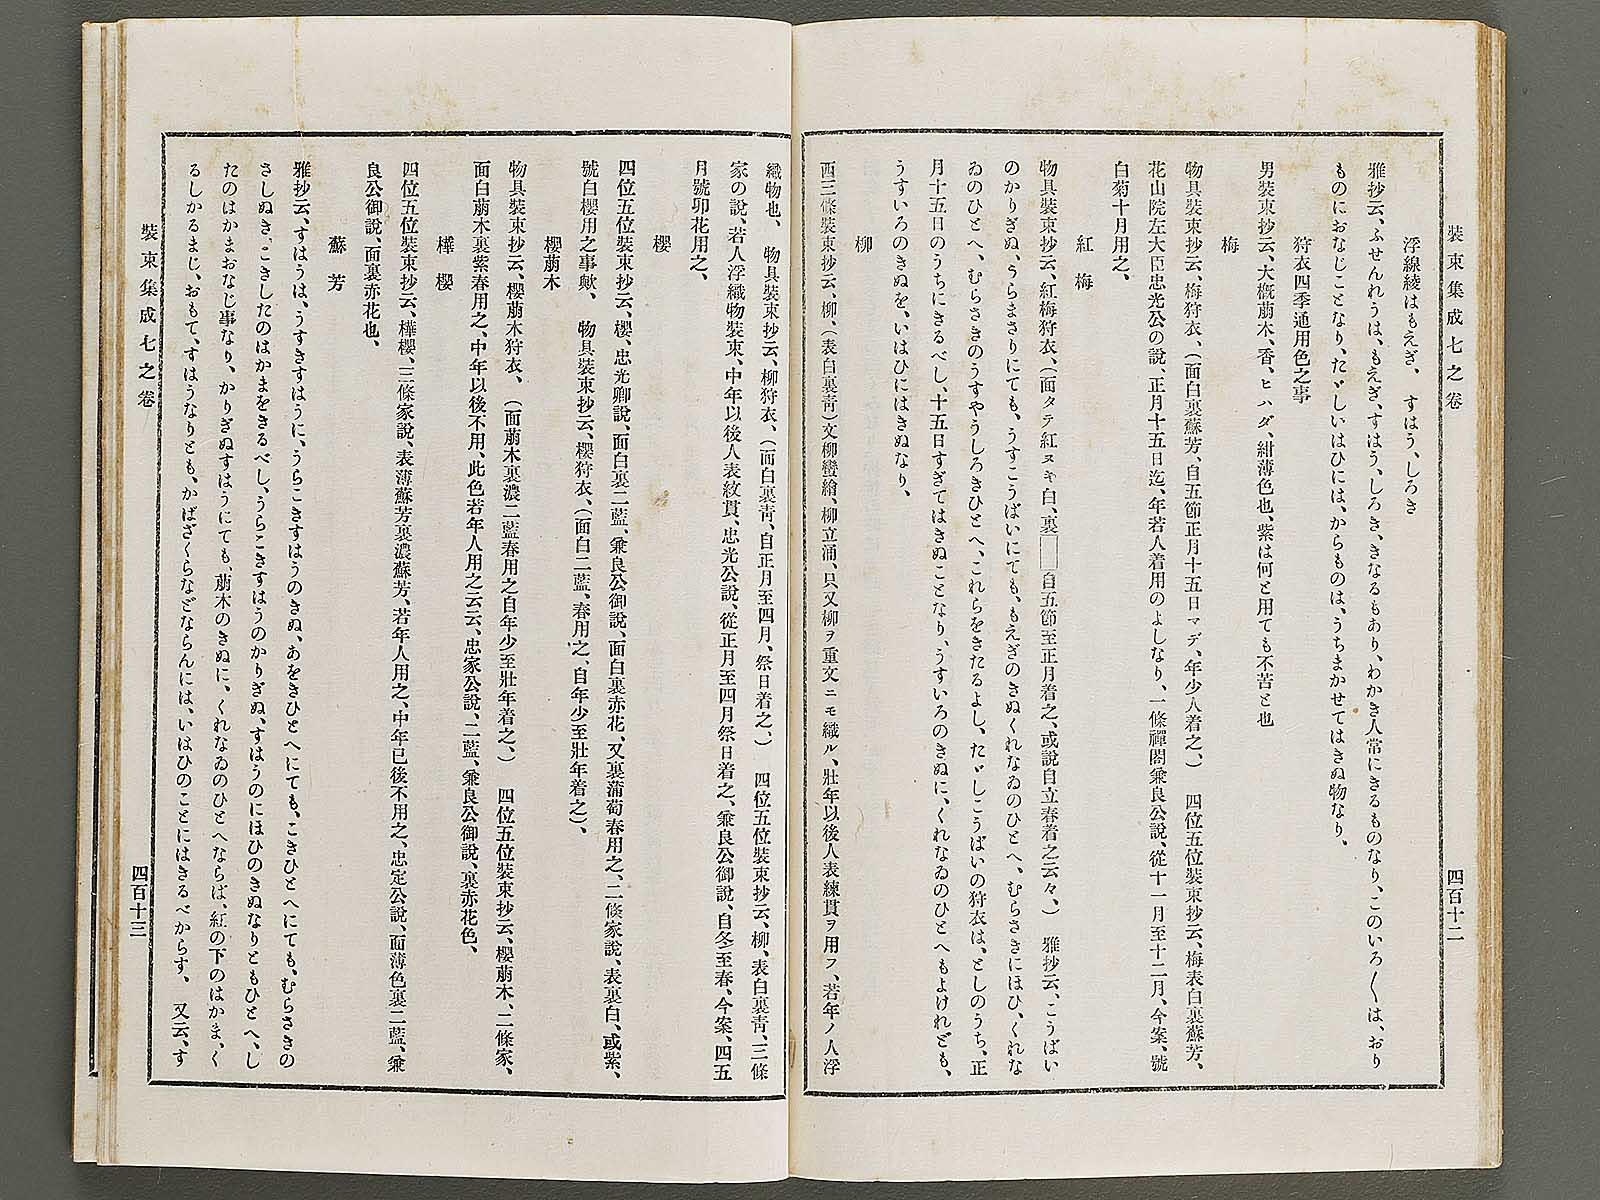 裝束集成七之卷
四百十二
浮線綾はもえぎ、すはう、しろき
雅抄云、ふせんれうは、もえぎ、すはう、しろき、きなるもあり、わかき人常にきるものなり、このいろ〳〵は、おり
ものにおなじことなり、たゞしいはひには、からものは、うちまかせてはきぬ物なり、
狩衣四季通用色之事
男裝束抄云、大槪萠木、香、ヒハダ、紺薄色也、紫は何と用ても不苦と也
梅
物具裝束抄云、梅狩衣、（面白裏蘇芳、自五節正月十五日マデ、年少人着之、）　四位五位裝束抄云、梅表白裏蘇芳、
花山院左大臣忠光公の說、正月十五日迄、年若人着用のよしなり、一條禪閤兼良公說、從十一月至十二月、今案、號
白菊十月用之、
紅梅
物具裝束抄云、紅梅狩衣、（面タテ紅ヌキ白、裏□自五節至正月着之、或說自立春着之云々、）　雅抄云、こうばい
のかりぎぬ、うらまさりにても、うすこうばいにても、もえぎのきぬくれなゐのひとへ、むらさきにほひ、くれな
ゐのひとへ、むらさきのうすやうしろきひとへ、これらをきたるよし、たゞしこうばいの狩衣は、としのうち、正
月十五日のうちにきるべし、十五日すぎてはきぬことなり、うすいろのきぬに、くれなゐのひとへもよけれども、
うすいろのきぬを、いはひにはきぬなり、
柳
西三條裝束抄云、柳、（表白裏靑）文柳蠻繪、柳立涌、只又柳ヲ重文ニモ織ル、壯年以後人表練貫ヲ用フ、若年ノ人浮
織物也、　物具裝束抄云、柳狩衣、（面白裏靑、自正月至四月、祭日着之、）　四位五位裝束抄云、柳、表白裏靑、三條
家の說、若人浮織物裝束、中年以後人表紋貫、忠光公說、從正月至四月祭日着之、兼良公御說、自冬至春、今案、四五
月號卯花用之、
櫻
四位五位裝束抄云、櫻、忠光卿說、面白裏二藍、兼良公御說、面白裏赤花、又裏蒲萄春用之、二條家說、表裏白、或紫、
號白櫻用之事歟、　物具裝束抄云、櫻狩衣、（面白二藍、春用之、自年少至壯年着之）、
櫻萠木
物具裝束抄云、櫻萠木狩衣、（面萠木裏濃二藍春用之自年少至壯年着之、）　四位五位裝束抄云、櫻萠木、二條家、
面白萠木裏紫春用之、中年以後不用、此色若年人用之云云、忠家公說、二藍、兼良公御說、裏赤花色、
樺櫻
四位五位裝束抄云、樺櫻、三條家說、表薄蘇芳裏濃蘇芳、若年人用之、中年已後不用之、忠定公說、面薄色裏二藍、兼
良公御說、面裏赤花也、
蘇芳
雅抄云、すはうは、うすきすはうに、うらこきすはうのきぬ、あをきひとへにても、こきひとへにても、むらさきの
さしぬき、こきしたのはかまをきるべし、うらこきすはうのかりぎぬ、すはうのにほひのきぬなりともひとへ、し
たのはかまおなじ事なり、かりぎぬすはうにても、萠木のきぬに、くれなゐのひとへならば、紅の下のはかま、く
るしかるまじ、おもて、すはうなりとも、かばざくらなどならんには、いはひのことにはきるべからす、　又云、す
裝束集成七之卷
四百十三